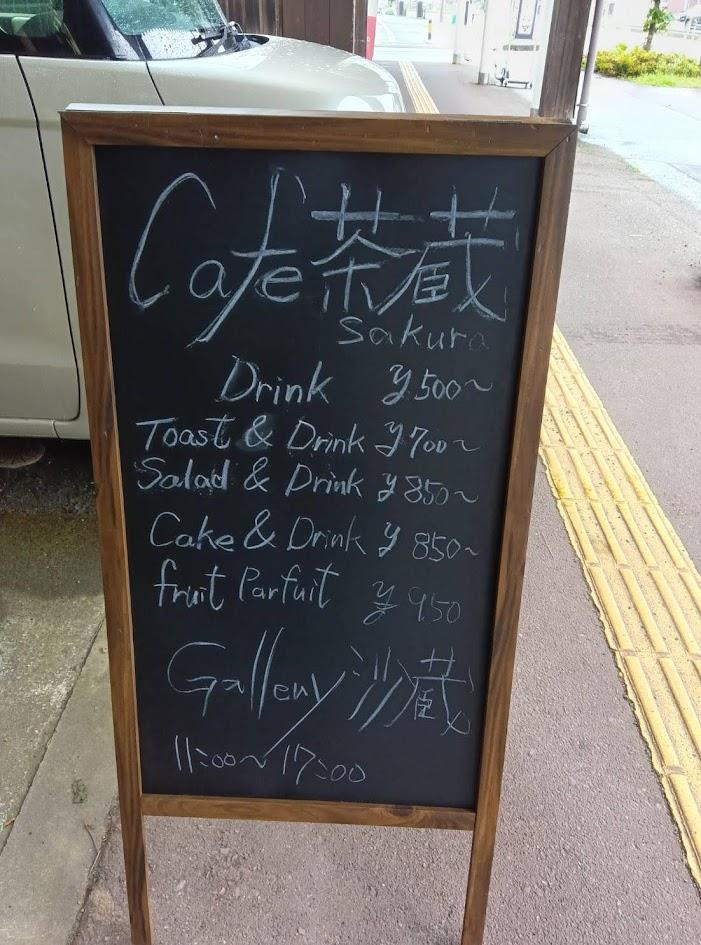 Cafe 茶蔵
Sakura
Drink ¥500~
Toast & Drink ¥700~
Salad & Drink ¥850~
Cake & Drink ¥850~
fruit Parfuit ¥950
Gallery 沙蔵
11:00~17:00